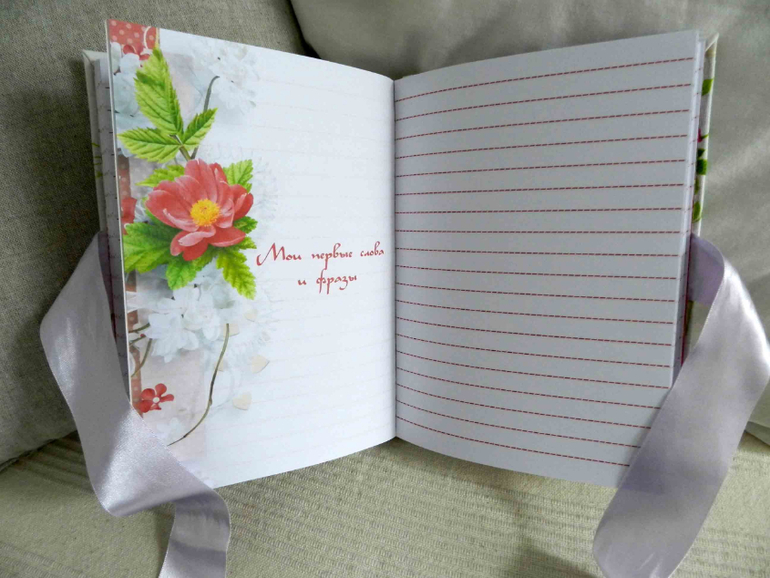 Мои первые слова
и фразы